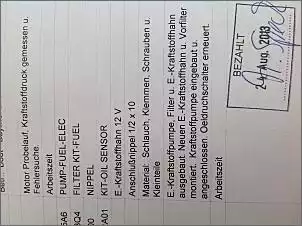 Motor Probelauf, Kraftstoffdruck gemessen u.
Fehlersuche.
Arbeitszeit
6A6 PUMP-FUEL-ELEC
3Q4 FILTER KIT-FUEL
00 NIPPEL
0A01 KIT-OIL SENSOR
E.-Kraftstoffhahn 12 V
Anschlußnippel 1/2 x 10
Material: Schlauch, Klemmen, Schrauben u.
Kleinteile
E.-Kraftstoffpumpe, Filter u. E.-Kraftstoffhahn
ausgebaut. Neuen E.-Kraftstoffhahn u. Vorfilter
montiert. Kraftstoffpumpe eingebaut u.
angeschlossen. Oeldruckschalter erneuert.
Arbeitszeit
BEZAHLT
24. Aug. 2013